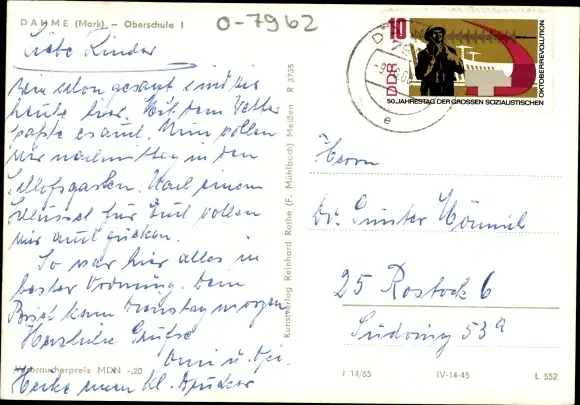 DAHME (Mark) – Oberschule I
O-7962
Liebe Kinder
sind wir
heute hier. Mit dem Wetter
paßte es auch. Nun wollen
wir nachmittag in den
Schloßgarten. Nach einem
Schlüssel für wollen
wir auch gucken.
So war hier alles in
bester Ordnung. Dem
Brief kam Dienstag morgen
Herzliche Grüße
Omi u. Opi.
Verbraucherpreis MDN -,20
Kunstverlag Reinhard Rothe (F. Mühlbach) Meißen R 3735
10
DDR
50. JAHRESTAG DER GROSSEN SOZIALISTISCHEN
OKTOBERREVOLUTION
e
Herrn
Dr. Günter
25 Rostock 6
Südring 53a
J 14/65 IV-14-45 L 552